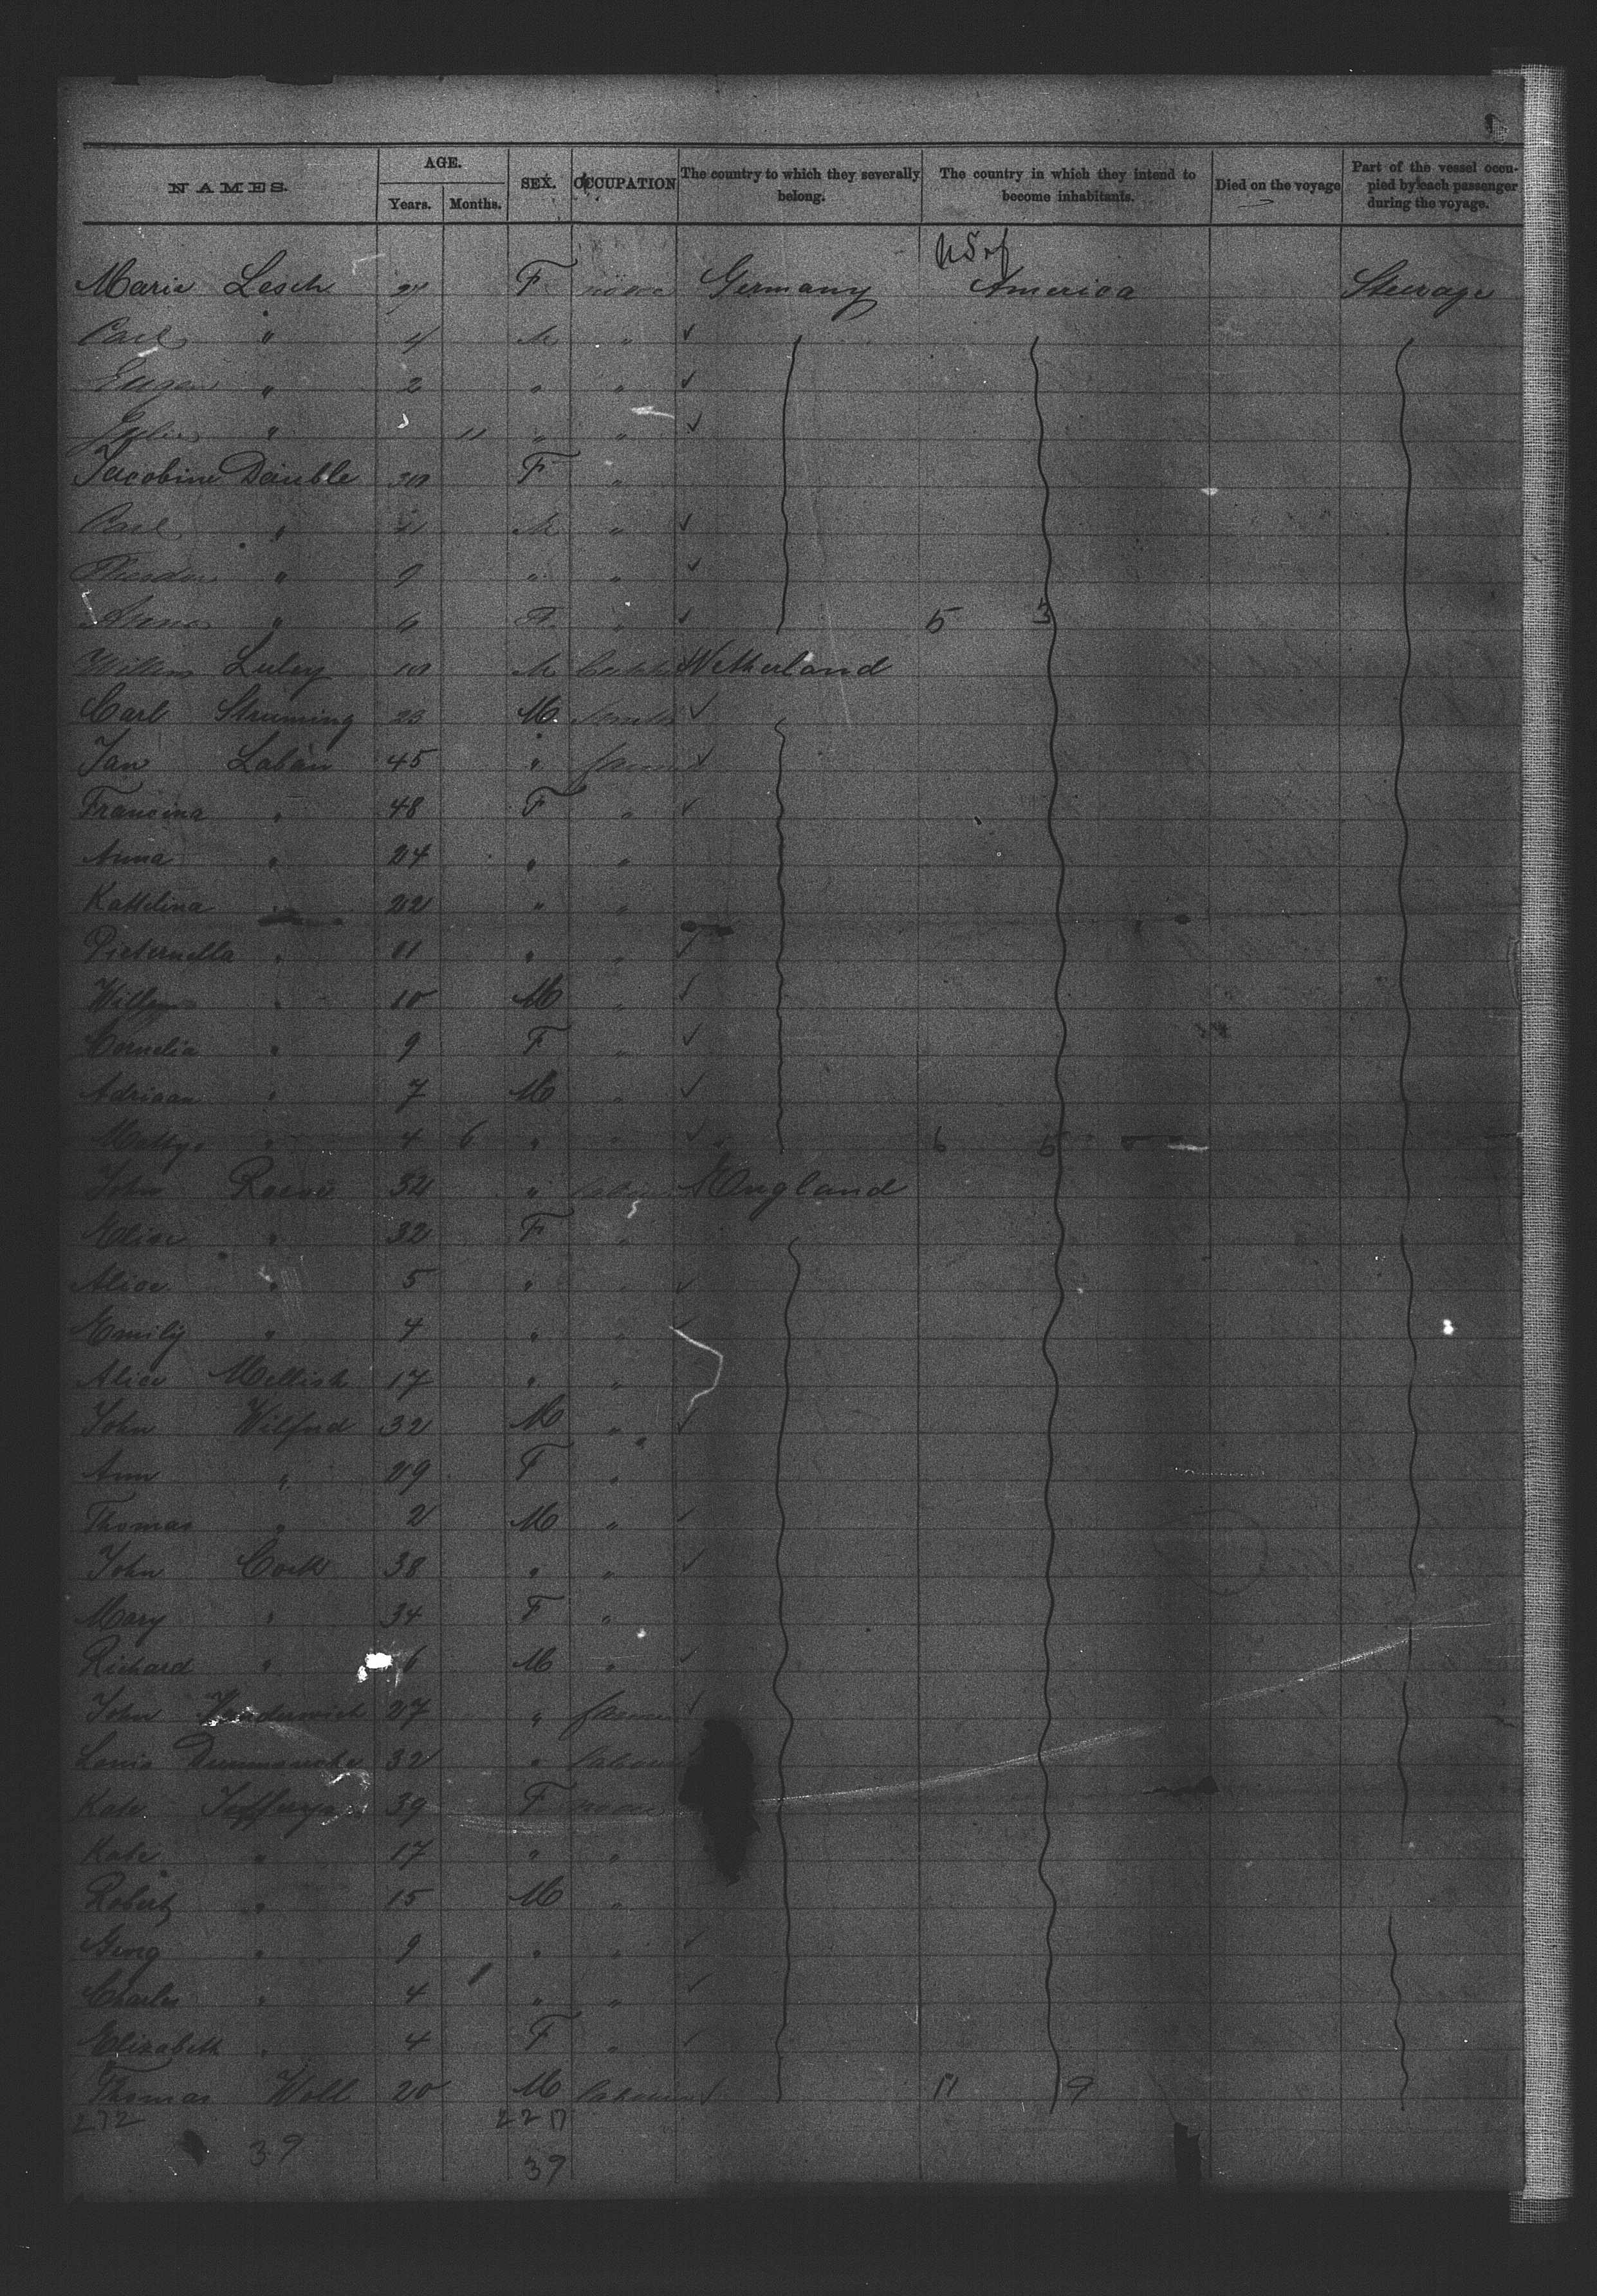 NAMES. AGE. Years. Months. SEX. OCCUPATION The country to which they severally belong. The country in which they intend to become inhabitants. Died on the voyage Part of the vessel occupied by each passenger during the voyage.
U S of
Marie Lesch F none Germany America Steerage
Carl " 4 M "
Eugen " 2 " "
" 11 " "
Jacobine Däuble 30 F "
Carl " 11 M "
Theodor " 9 " "
Anna " 6 F " 5 3
Willem Luley M Netherland
Carl Struming 23 M
Jan Laban 45 " farmer
Francina " 48 F "
Anna " 24 " "
Kattelina " 22 " "
Pieternella " 11 " "
Willem " 10 M "
Cornelia " 9 F "
Adriaan " 7 M "
Matthys " 4 6 " " 6 6
John 32 " England
Elise " 32 F "
Alice " 5 " "
Emily " 4 " "
Alice Mellish 17 " "
John Wilfred 32 M "
Ann " 29 F "
Thomas " 2 M "
John Cock 38 " "
Mary " 34 F "
Richard " 6 M "
John 27 " farmer
Louis 32 " labourer
Kate Jefferys 39 F none
Kate " 17 " "
Robert " 15 M "
Georg " 9 " "
Charles " 4 " "
Elizabeth " 4 F "
Thomas Woll 20 M labourer 11 9
272 22 17
39 39